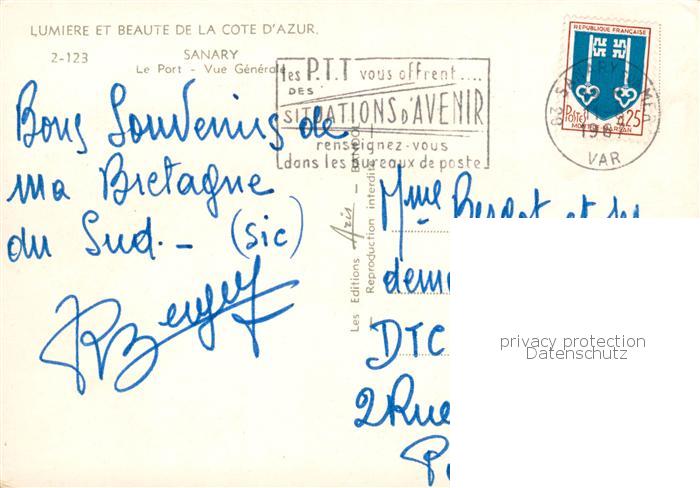 LUMIERE ET BEAUTE DE LA COTE D'AZUR.
2-123 SANARY
Le Port - Vue Générale
les P.T.T vous offrent....
DES
SITUATIONS d'AVENIR
renseignez-vous
dans les bureaux de poste
REPUBLIQUE FRANÇAISE
Postes 0,25
MONT-DE-MARSAN
SANARY
VAR
Bons Souvenirs de
ma Bretagne
du Sud. - (sic)
Les Editions Aris - BANDOL
Reproduction interdite
Mme et
DTC
2 Rue
privacy protection
Datenschutz